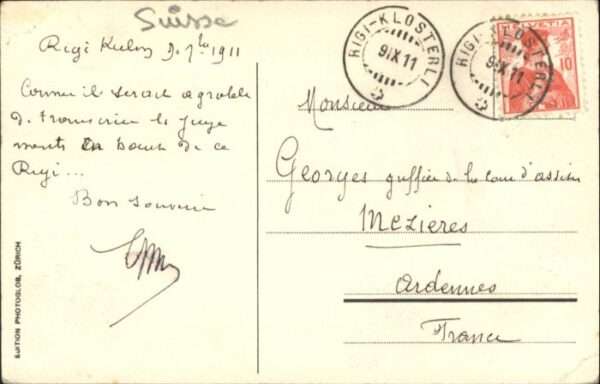 Suisse
Rigi Kulm 9. 7bre 1911
Comme il serait agréable
de transcrire les juge
ments en haut de ce
Rigi...
Bon souvenir
EDITION PHOTOGLOB, ZÜRICH
RIGI-KLÖSTERLI
9.IX.11
RIGI-KLÖSTERLI
9.IX.11
HELVETIA
10
Monsieur
Georges greffier de la cour d'assises
MÉZIÈRES
Ardennes
France